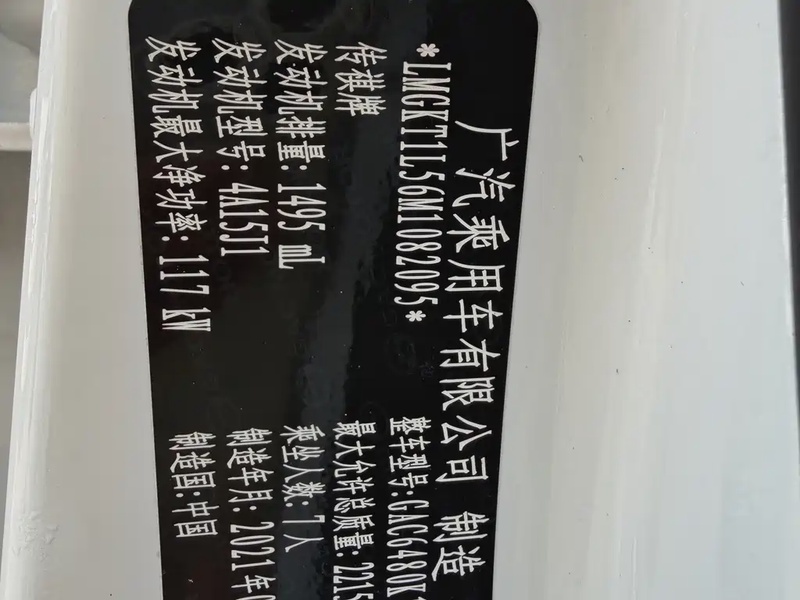 广汽乘用车有限公司 制造
*LMGKT1L56M1082095* 整车型号:GAC6480K
传祺牌 最大允许总质量:2215
发动机排量:1495 mL 乘坐人数:7人
发动机型号:4A15J1 制造年月:2021年
发动机最大净功率:117 kW 制造国:中国